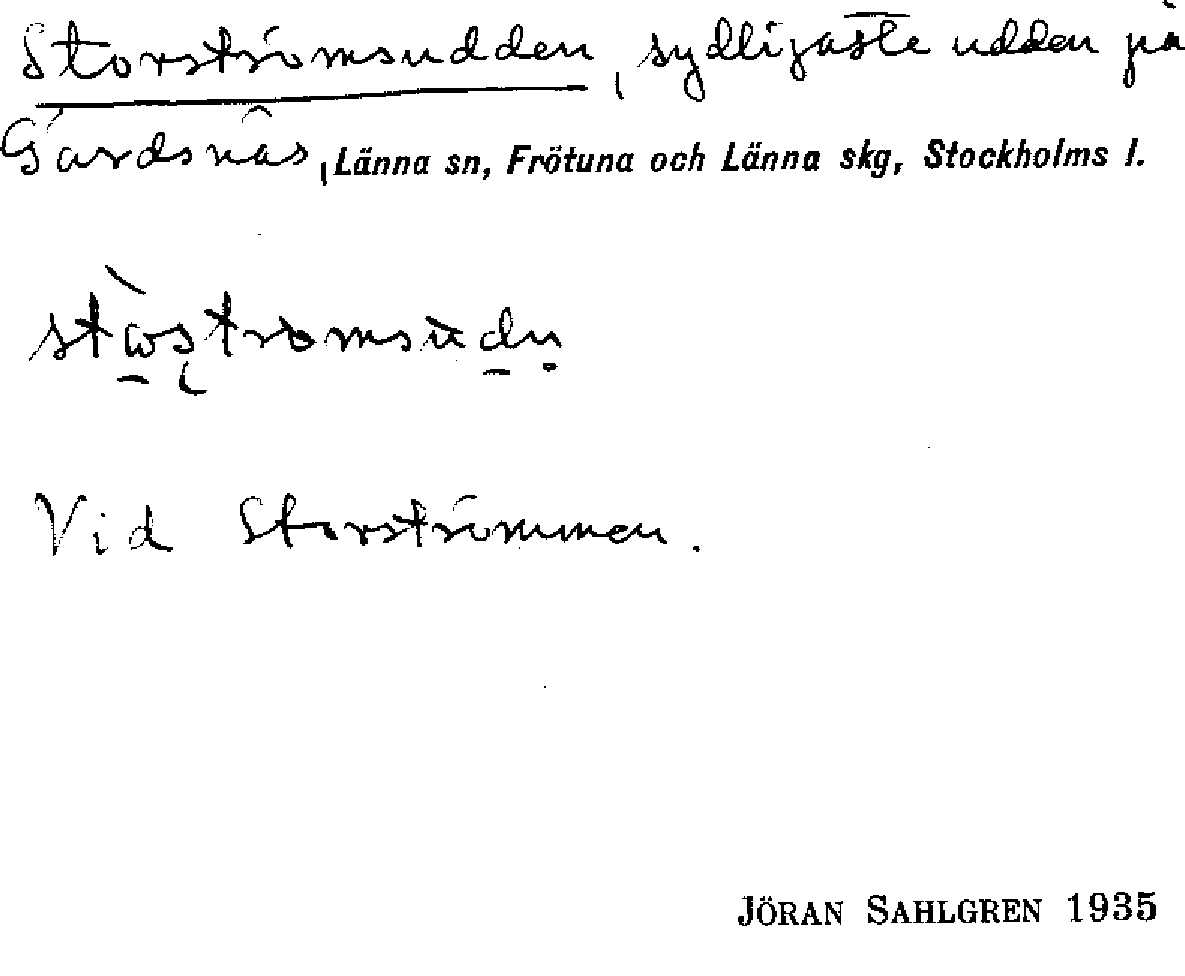 Storströmsudden, sydligaste udden på
Gårdsnäs, Länna sn, Frötuna och Länna skg, Stockholms l.
Vid Storströmmen.
JÖRAN SAHLGREN 1935